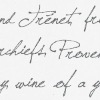 nd Trénet fr
rchiefs Proven
s wine of a g